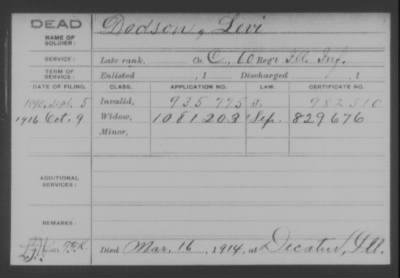 DEAD
NAME OF SOLDIER: Dodson, Levi
SERVICE: Late rank, Co. C, 60 Reg't Ill. Inf.
TERM OF SERVICE: Enlisted , 1 Discharged , 1
DATE OF FILING. CLASS. APPLICATION NO. LAW. CERTIFICATE NO.
1890, Sept. 5 Invalid, 935775 982810
1916 Oct. 9 Widow, 1081203 Sep. 829676
Minor,
ADDITIONAL SERVICES:
REMARKS:
Died Mar. 16, 1914, at Decatur, Ill.